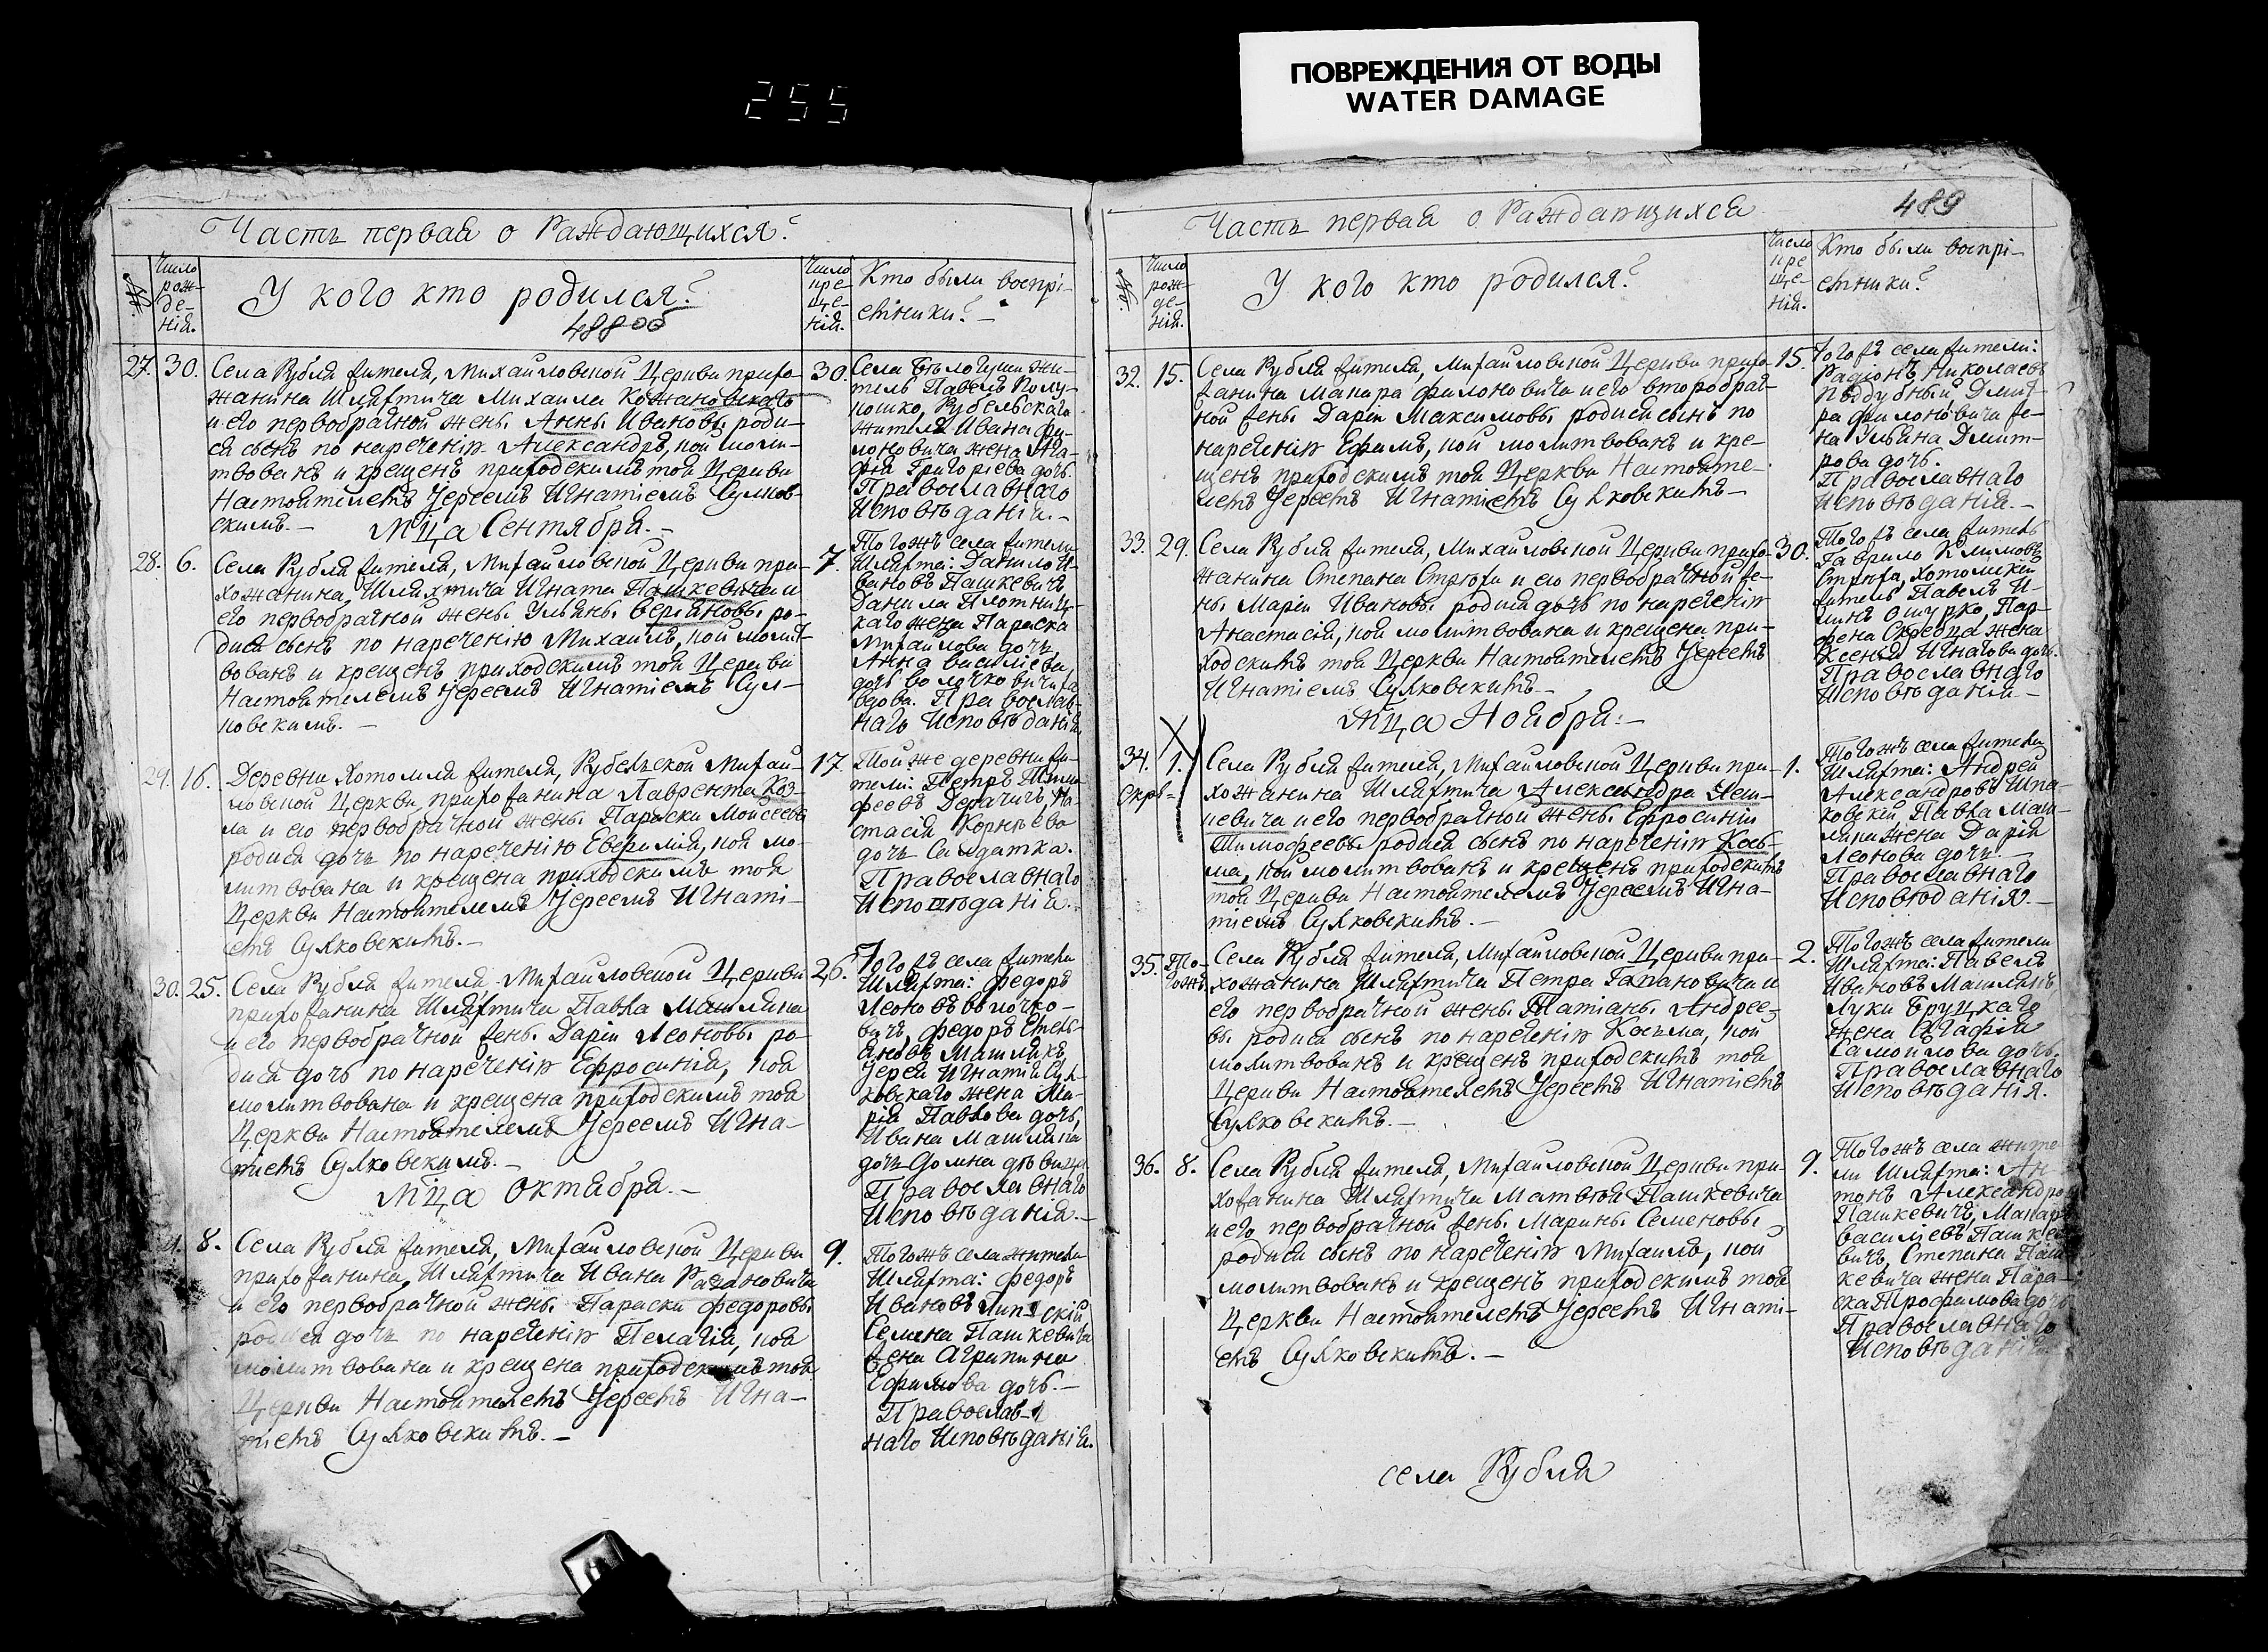 ПОВРЕЖДЕНИЯ ОТ ВОДЫ
WATER DAMAGE
255
Часть первая о Раждающихся?
№
Число рож-де-нія.
У кого кто родился?
488 об
Число кре-ще-нія.
Кто были воспрі-
емники? —
27. 30.
Села Рубля жителя, Михайловской Церкви прихо-
жанина Шляхтича Михаила Кожановскаго
и его первобрачной жены Анны Ивановы роди-
ся сынъ по нареченію Александръ, кой моли-
твованъ и крещенъ приходскимъ той Церкви
Настоятелемъ Іереемъ Игнатіемъ Сулков-
скимъ. —
30.
Села Бѣлоуши жи-
тель Павелъ Полу-
кошко, Рубельскаго
жителя Ивана Фи-
лоновича жена Ага-
фія Григоріева дочь.
Православнаго
Исповѣданія. —
Мца Сентября. —
28. 6.
Села Рубля жителя, Михайловской Церкви при-
хожанина, Шляхтича Игната Пашкевича и
его первобрачной жены Ульяны ро-
дися сынъ по нареченію Михаилъ, кой молит-
вованъ и крещенъ приходскимъ той Церкви
Настоятелемъ Іереемъ Игнатіемъ Сул-
ковскимъ. —
7.
Тогожъ села жители
Шляхта: Данило И-
вановъ Пашкевичъ
Данила Плотниц-
каго жена Параска
Михайлова дочь,
Анна Василіева
дочь Волочковичижа
вдова. Православ-
наго Исповѣданія
29. 16.
Деревни Хотомля жителя, Рубельской Михай-
ловской Церкви, прихожанина Лаврента Коз-
ла и его первобрачной жены Параски Моисеевы
родися дочь по нареченію Евфимія, коя мо-
литвована и крещена приходскимъ той
Церкви Настоятелемъ Іереемъ Игнаті-
емъ Сулковскимъ. —
17.
Той же деревни жи-
тели: Петръ Тимо-
феевъ Дерачичъ, На-
стасія Корнѣева
дочь Салдатка.
Православнаго
Исповѣданія. —
30. 25.
Села Рубля жителя Михайловской Церкви
прихожанина Шляхтича Павла Машляка
и его первобрачной жены Даріи Леоновы ро-
дися дочь по нареченію Ефросинія, коя
молитвована и крещена приходскимъ той
Церкви Настоятелемъ Іереемъ Игна-
тіемъ Сулковскимъ. —
26.
Тогожъ села жители
Шляхта: Федоръ
Леоновъ Вылочко-
вичъ, Федоръ Степ-
ановъ Машлякъ
Іерея Игнатія Сул-
ковскаго жена Ма-
рія Павлова дочь,
Ивана Машляка
дочь Домна дѣвица
Православнаго
Исповѣданія. —
Мца Октября. —
31. 8.
Села Рубля жителя, Михайловской Церкви
прихожанина, Шляхтича Ивана Рагановича
и его первобрачной жены Параски Федоровы
родися дочь по нареченію Пелагія, коя
молитвована и крещена приходскимъ той
Церкви Настоятелемъ Іереемъ Игна-
тіемъ Сулковскимъ. —
9.
Тогожъ села жители
Шляхта: Федоръ
Ивановъ Липскій
Семена Пашкевича
жена Агрипина
Ефимова дочь. —
Православ-
наго Исповѣданія.
489
Часть первая о Раждающихся
№
Число рож-де-нія.
У кого кто родился?
Число кре-ще-нія.
Кто были воспрі-
емники?
32. 15.
Села Рубля жителя, Михайловской Церкви прихо-
жанина Макара Филоновича и его второбрач-
ной жены Даріи Максимовы родися сынъ по
нареченію Ефимъ, кой молитвованъ и кре-
щенъ приходскимъ той Церкви Настояте-
лемъ Іереемъ Игнатіемъ Сулковскимъ —
15.
Тогожъ села жители:
Радіонъ Николаевъ
Поддубный, Дмит-
ра Филоновича же-
на Ульяна Дмит-
рова дочь.
Православнаго
Исповѣданія. —
33. 29.
Села Рубля жителя, Михайловской Церкви прихо-
жанина Степана Стрюка и его первобрачной же-
ны Маріи Ивановы родися дочь по нареченію
Анастасія, коя молитвована и крещена при-
ходскимъ той Церкви Настоятелемъ Іереемъ
Игнатіемъ Сулковскимъ —
30.
Тогожъ села житель
Гаврило Климовъ
Стрюка, Хотомскій
житель Павелъ И-
Ошурко, Пар-
фена Скребца жена
Ксенья Игнатова дочь.
Православнаго
Исповѣданія —
Мца Ноября: —
34. 1.
Села Рубля жителя, Михайловской Церкви при-
хожанина Шляхтича Александра
и его первобрачной жены Ефросиніи
Тимофеевы родися сынъ по нареченію Кось-
ма, кой молитвованъ и крещенъ приходскимъ
той Церкви Настоятелемъ Іереемъ Игна-
тіемъ Сулковскимъ. —
1.
Тогожъ села жители
Шляхта: Андрей
Александровъ Шпа-
ковскій, Павла Маш-
ляка жена Дарія
Леонова дочь. —
Православнаго
Исповѣданія. —
35. То-гожъ
Села Рубля жителя, Михайловской Церкви при-
хожанина Шляхтича Петра и
его первобрачной жены Татіаны Андрее-
вы родися сынъ по нареченію Косьма, кой
молитвованъ и крещенъ приходскимъ той
Церкви Настоятелемъ Іереемъ Игнатіемъ
Сулковскимъ. —
2.
Тогожъ села жители
Шляхта: Павелъ
Ивановъ Машлякъ
Луки Бруцкаго
жена Агафія
Самойлова дочь.
Православнаго
Исповѣданія.
36. 8.
Села Рубля жителя, Михайловской Церкви при-
хожанина Шляхтича Матвѣя Пашкевича
и его первобрачной жены Марины Семеновы
родися сынъ по нареченію Михаилъ, кой
молитвованъ и крещенъ приходскимъ той
Церкви Настоятелемъ Іереемъ Игнаті-
емъ Сулковскимъ. —
9.
Тогожъ села жите-
ли Шляхта: Ан-
тонъ Александро
Пашкевичъ, Макар
Василіевъ Пашке-
вичъ, Степана Паш-
кевича жена Пара-
ска Трофимова дочь
Православнаго
Исповѣданія
села Рубля